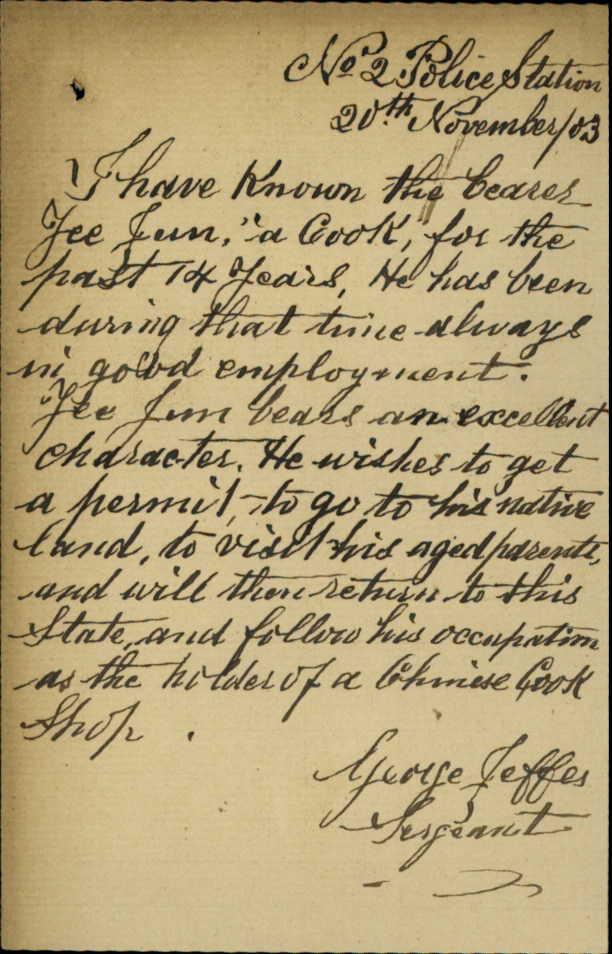 No 2 Police Station
20th November/03
I have Known the bearer
Yee Jun, "a Cook", for the
past 14 Years, He has been
during that time always
in good employment.
Yee Jun bears an excellent
character. He wishes to get
a permit, to go to his native
land, to visit his aged parents,
and will then return to this
State, and follow his occupation
as the holder of a Chinese Cook
Shop.
George Jeffes
Sergeant